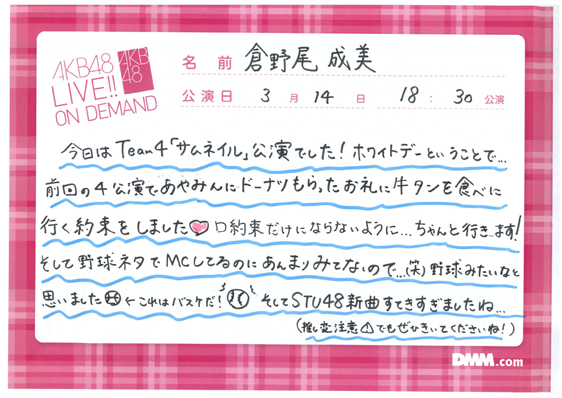 AKB48
LIVE!!
ON DEMAND
AKB
48
名前 倉野尾 成美
公演日 3月14日 18:30公演
今日はTeam4「サムネイル」公演でした!ホワイトデーということで…
前回の4公演であやみんにドーナツもらったお礼に牛タンを食べに
行く約束をしました 口約束だけにならないように…ちゃんと行きます!
そして野球ネタでMCしてるのにあんまりみてないので…(笑)野球みたいなと
思いました ←これはバスケだ! そしてSTU48新曲すてきすぎましたね…
(推し変注意⚠でもぜひきいてくださいね!)
DMM.com